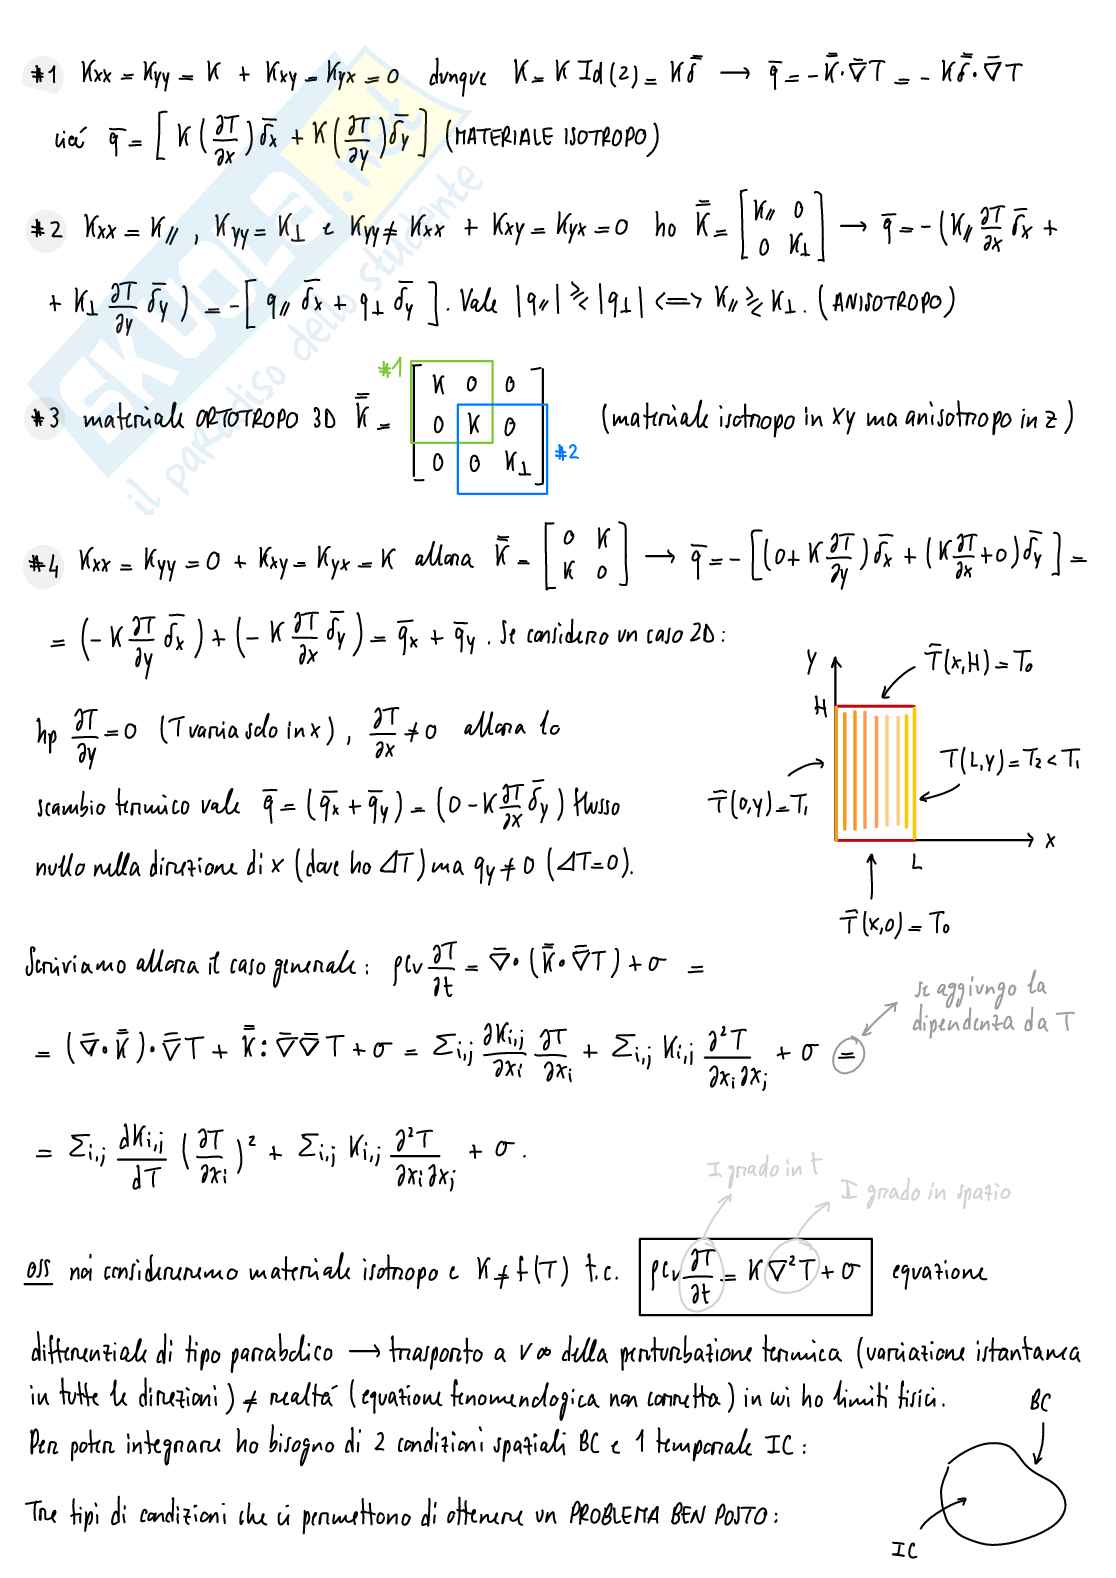 #1 Kxx = Kyy = K + Kxy = Kyx = 0 dunque K = K Id(2) = K δ̿ → q̄ = - K̿ · ∇̄T = - K δ̿ · ∇̄T
cioé q̄ = [ K (∂T/∂x) δ̄x + K (∂T/∂y) δ̄y ] (MATERIALE ISOTROPO)
#2 Kxx = K//, Kyy = K⊥ e Kyy ≠ Kxx + Kxy = Kyx = 0 ho K̿ = [K// 0; 0 K⊥] → q̄ = - (K// ∂T/∂x δ̄x +
+ K⊥ ∂T/∂y δ̄y) = - [ q// δ̄x + q⊥ δ̄y ]. Vale |q//| ≷ |q⊥| <=> K// ≷ K⊥. (ANISOTROPO)
#1
#3 materiale ORTOTROPO 3D K̿ = [K 0 0; 0 K 0; 0 0 K⊥] (materiale isotropo in xy ma anisotropo in z)
#2
#4 Kxx = Kyy = 0 + Kxy = Kyx = K allora K̿ = [0 K; K 0] → q̄ = - [(0 + K ∂T/∂y) δ̄x + (K ∂T/∂x + 0) δ̄y] =
= (- K ∂T/∂y δ̄x) + (- K ∂T/∂x δ̄y) = q̄x + q̄y. Se considero un caso 2D:
y
T̄(x,H) = T0
H
hp ∂T/∂y = 0 (T varia solo in x), ∂T/∂x ≠ 0 allora lo
T(L,y) = T2 < T1
scambio termico vale q̄ = (q̄x + q̄y) = (0 - K ∂T/∂x δ̄y) flusso
T̄(0,y) = T1
x
L
nullo nella direzione di x (dove ho ΔT) ma qy ≠ 0 (ΔT=0).
T̄(x,0) = T0
Scriviamo allora il caso generale: ρcv ∂T/∂t = ∇̄ · (K̿ · ∇̄T) + σ =
se aggiungo la
dipendenza da T
= (∇̄ · K̿) · ∇̄T + K̿ : ∇̄∇̄T + σ = Σi,j ∂Ki,j/∂xi ∂T/∂xi + Σi,j Ki,j ∂²T/∂xi∂xj + σ =
= Σi,j dKi,j/dT (∂T/∂xi)² + Σi,j Ki,j ∂²T/∂xi∂xj + σ.
I grado in t
I grado in spazio
oss noi considereremo materiale isotropo e K ≠ f(T) t.c. ρcv ∂T/∂t = K ∇²T + σ equazione
differenziale di tipo parabolico → trasporto a v∞ della perturbazione termica (variazione istantanea
in tutte le direzioni) ≠ realtá (equazione fenomenologica non corretta) in cui ho limiti fisici.
BC
Per poter integrare ho bisogno di 2 condizioni spaziali BC e 1 temporale IC:
Tre tipi di condizioni che ci permettono di ottenere un PROBLEMA BEN POSTO:
IC
SKUOLA.net
il paradiso dello studente